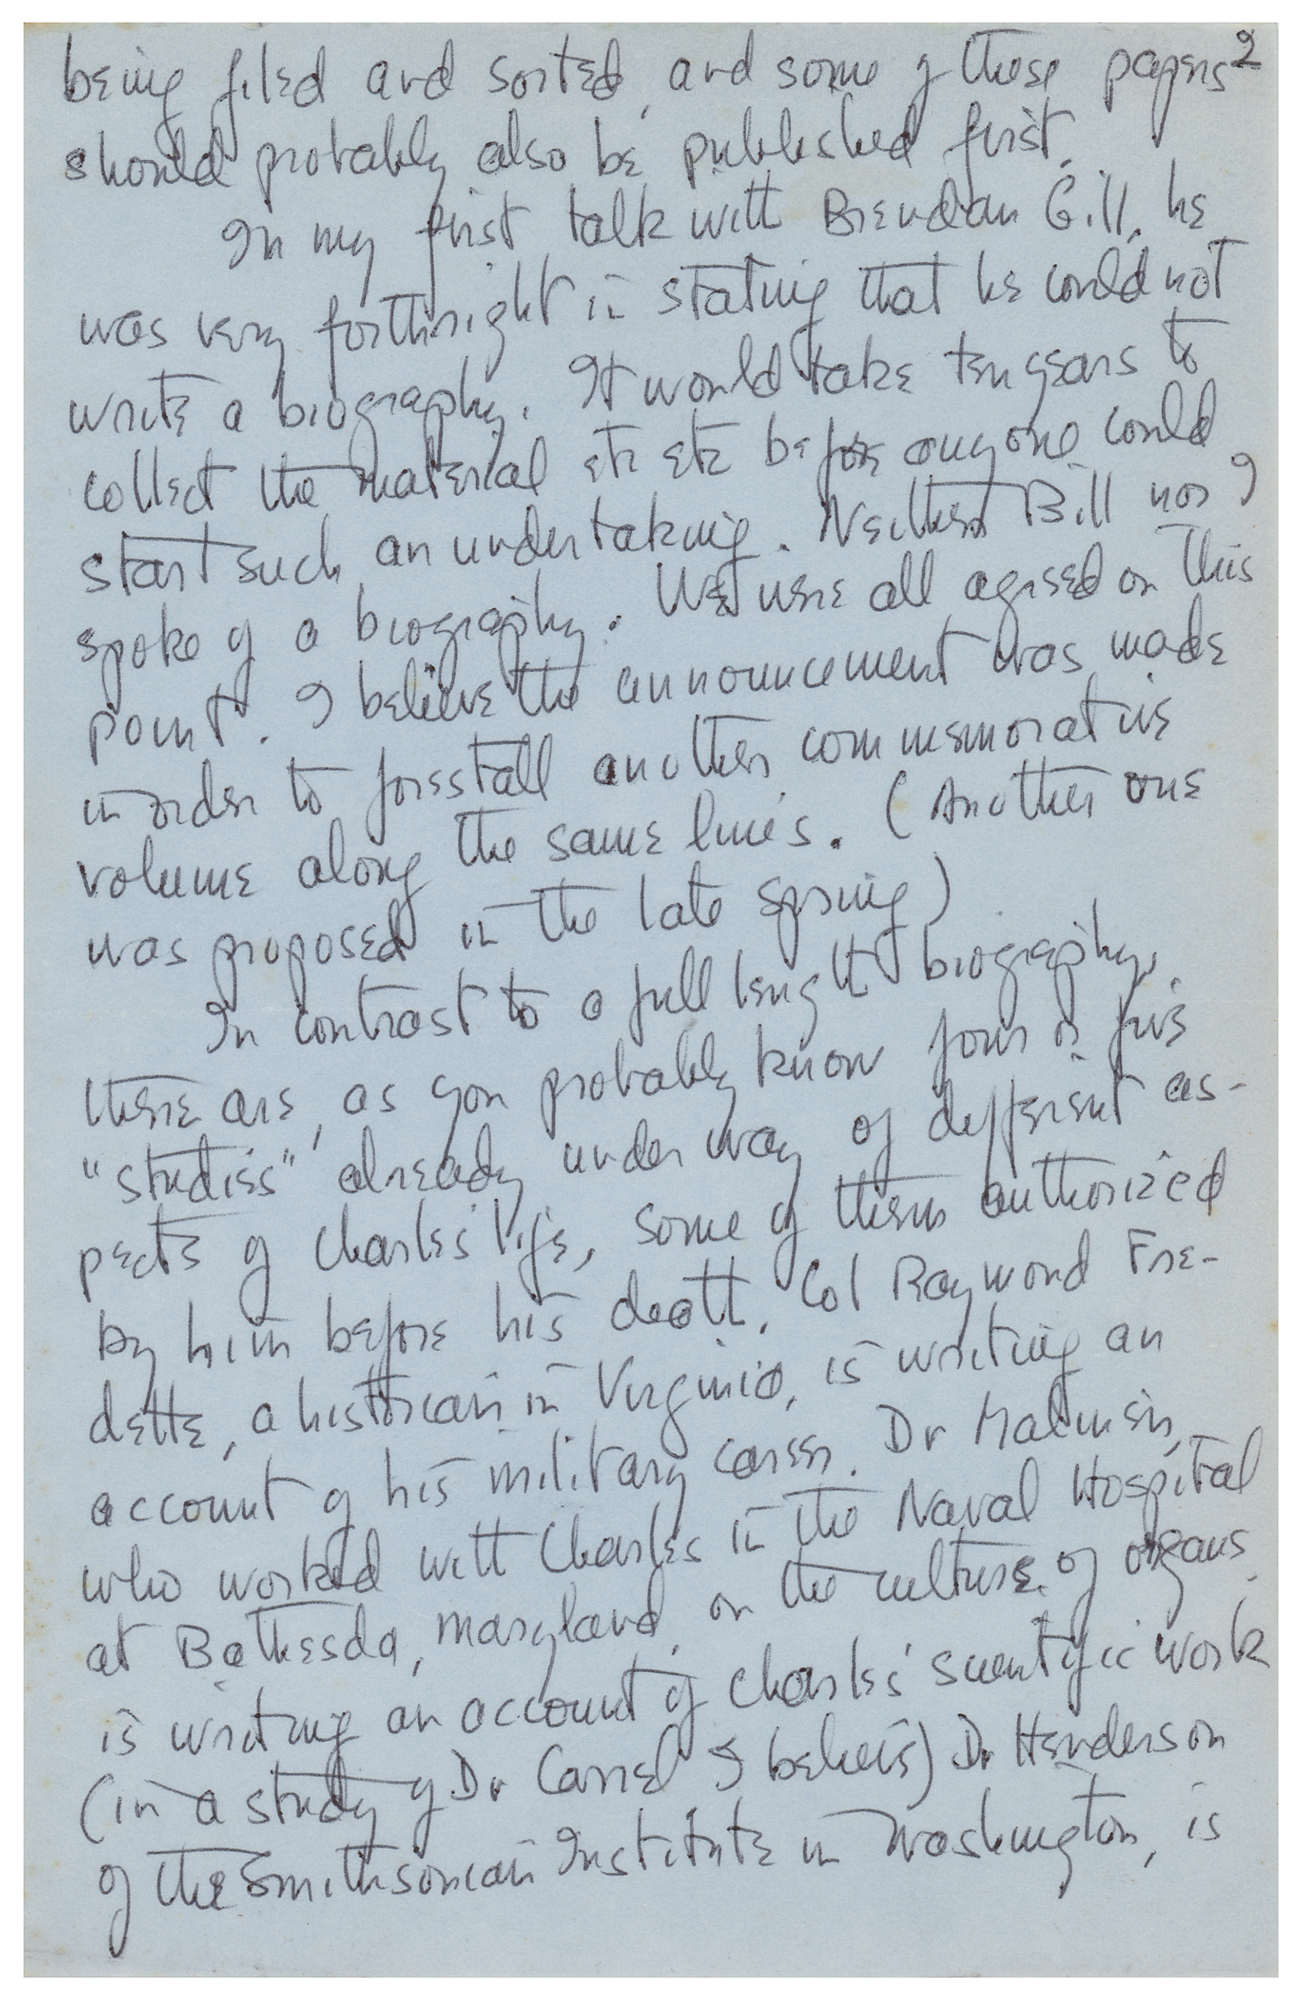 2
being filed and sorted, and some of these papers
should probably also be published first.
In my first talk with Brendan Gill, he
was very forthright in stating that he could not
write a biography. It would take ten years to
collect the material etc etc before anyone could
start such an undertaking. Neither Bill nor I
spoke of a biography. We were all agreed on this
point. I believe the announcement was made
in order to forestall another commemorative
volume along the same lines. (Another one
was proposed in the late spring)
In contrast to a full lenght biography,
there are, as you probably know four or five
"studies" already under way of different as-
pects of Charles' life, some of them authorized
by him before his death. Col Raymond Fre-
dette, a historian in Virginia, is writing an
account of his military career. Dr Malinin,
who worked with Charles in the Naval Hospital
at Bethesda, Maryland, on the culture of organs
is writing an account of Charles' scientific work
(in a study of Dr Carrel I believe) Dr Henderson
of the Smithsonian Institute in Washington, is